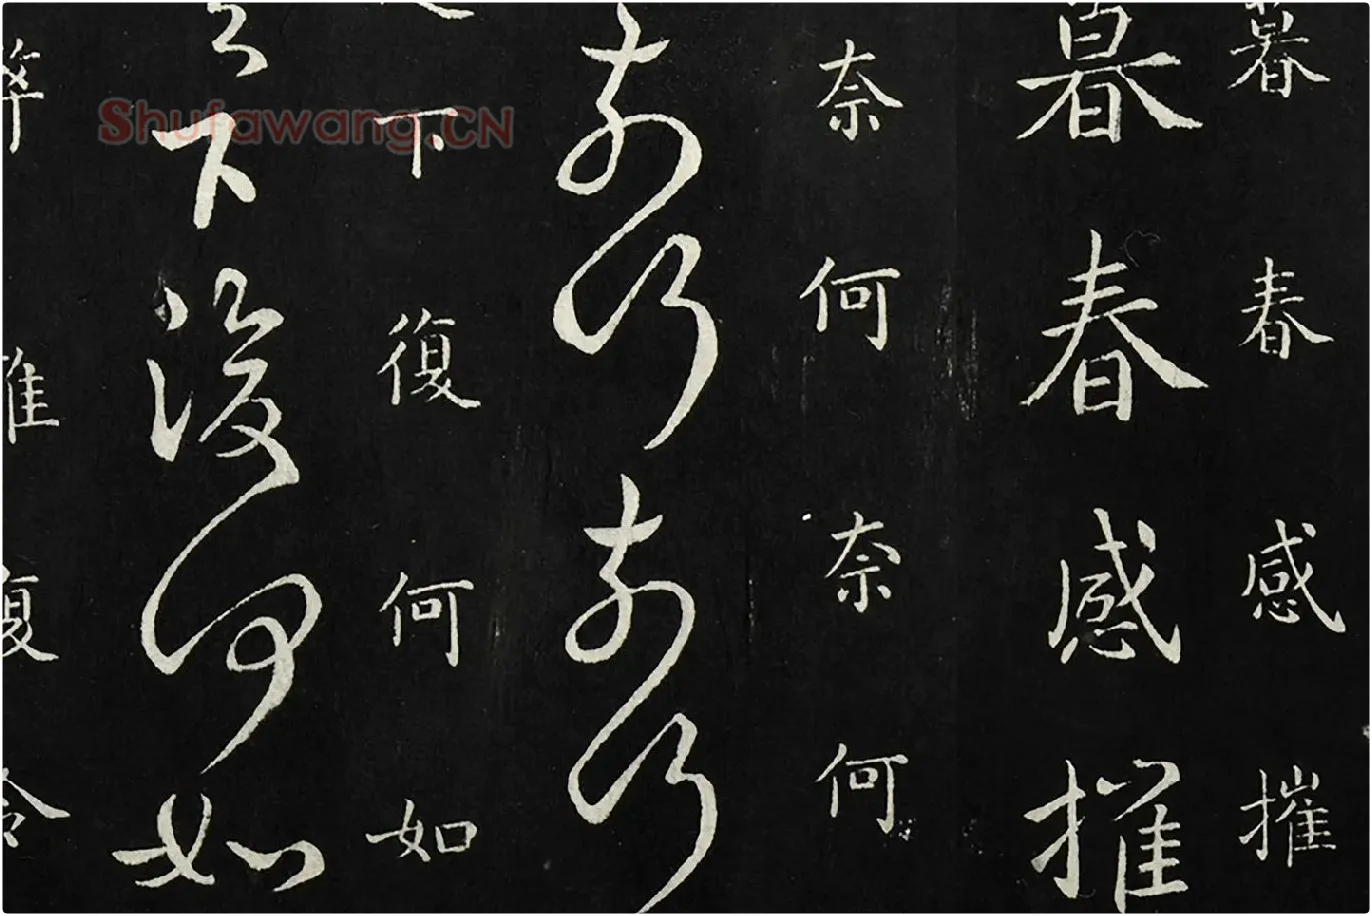 暮春感摧
暮春感摧
奈何奈何
奈何奈何
下復何如
下復何如
Shufawang.CN